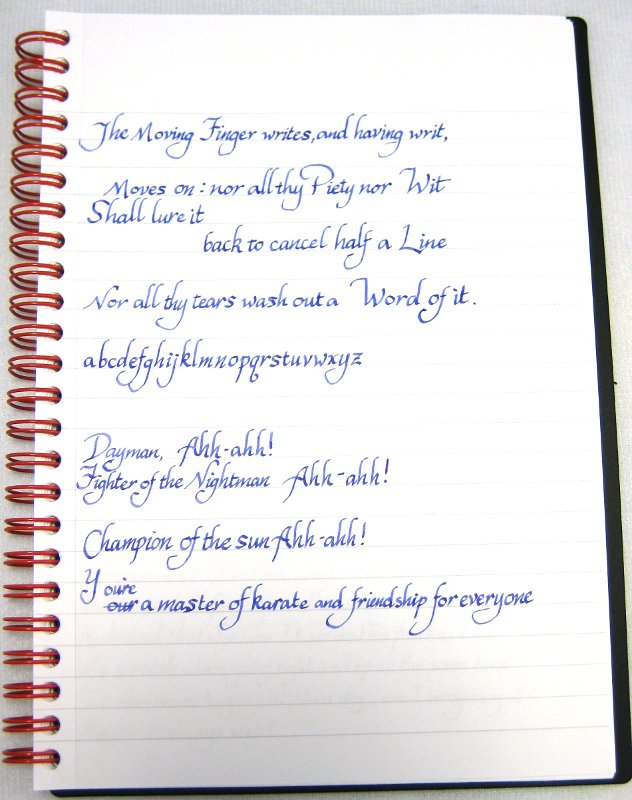 The Moving Finger writes, and having writ,
Moves on : nor all thy Piety nor Wit
Shall lure it
back to cancel half a Line
Nor all thy tears wash out a Word of it.
abcdefghijklmnopqrstuvwxyz
Dayman, Ahh-ahh!
Fighter of the Nightman Ahh-ahh!
Champion of the sun Ahh-ahh!
You're
our a master of karate and friendship for everyone